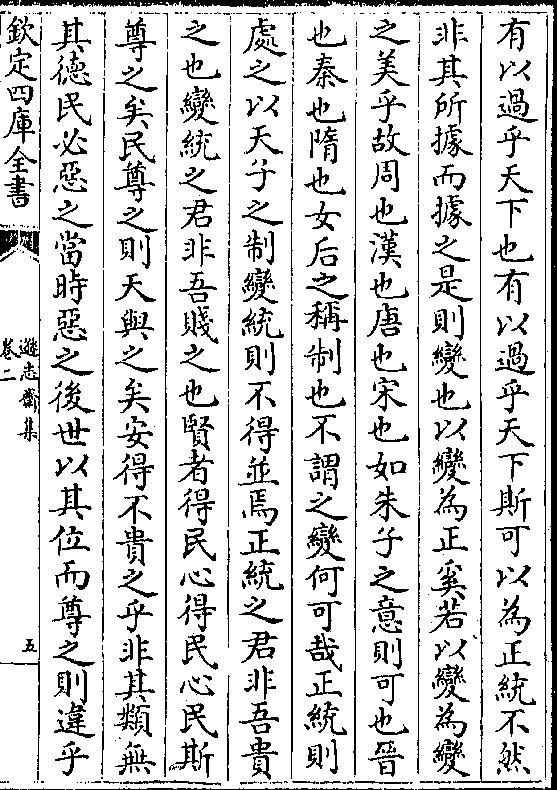 有以過乎天下也有以過乎天下斯可以為正統不然
非其所據而據之是則變也以變為正奚若以變為變
之美乎故周也漢也唐也宋也如朱子之意則可也晉
也秦也隋也女后之稱制也不謂之變何可哉正統則
處之以天子之制變統則不得並焉正統之君非吾貴
之也變統之君非吾賤之也賢者得民心得民心民斯
尊之矣民尊之則天與之矣安得不貴之乎非其類無
其德民必惡之當時惡之後世以其位而尊之則違乎
欽定四庫全書
遜志齋集
卷二
五